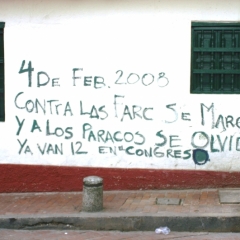 4 DE FEB. 2008
CONTRA LAS FARC SE MARC
Y A LOS PARACOS SE OLVID
YA VAN 12 EN CONGRESO